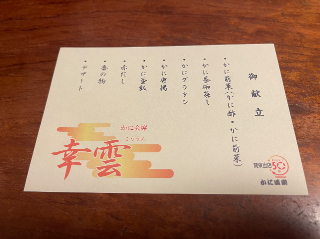 御献立
・かに前菜(かに酢・かに前菜)
・かに茶碗蒸し
・かにグラタン
・かに唐揚
・かに釜飯
・赤だし
・香の物
・デザート
かに会席
幸雲
関東出店
50
かに道楽